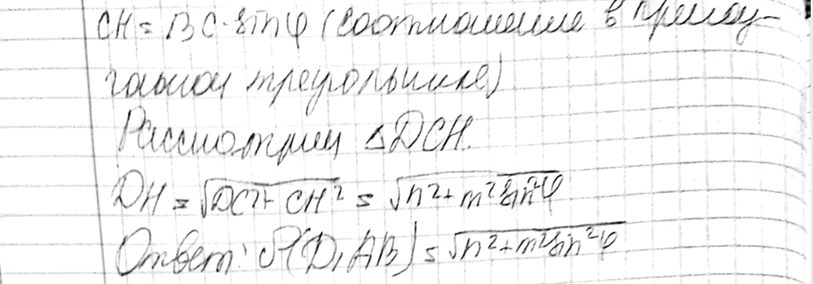 CH = BC · sin φ (соотношение в прямоу-
гольном треугольнике)
Рассмотрим △DCH.
DH = √DC²+ CH² = √n²+m² sin²φ
Ответ: ρ(D, AB) = √n²+m² sin²φ